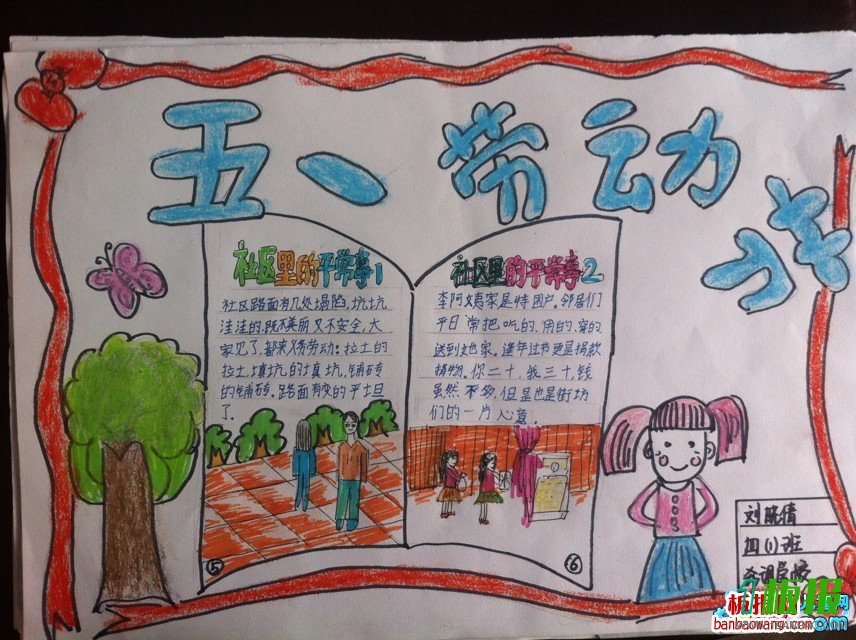 五一劳动节
社区里的平常事1
社区路面有几处塌陷,坑坑
洼洼的,既不美丽又不安全,大
家见了,都来义务劳动:拉土的
拉土,填坑的填坑,铺砖
的铺砖。路面有变的平坦
了.
⑤
社区里的平常事2
李阿姨家是特困户。邻居们
平日常把吃的、用的、穿的
送到她家。逢年过节更是捐款
捐物。你二十,我三十,钱
虽然不多,但是也是街坊
们的一片心意.
⑥
四(1)班
板报网
banbaowang.com